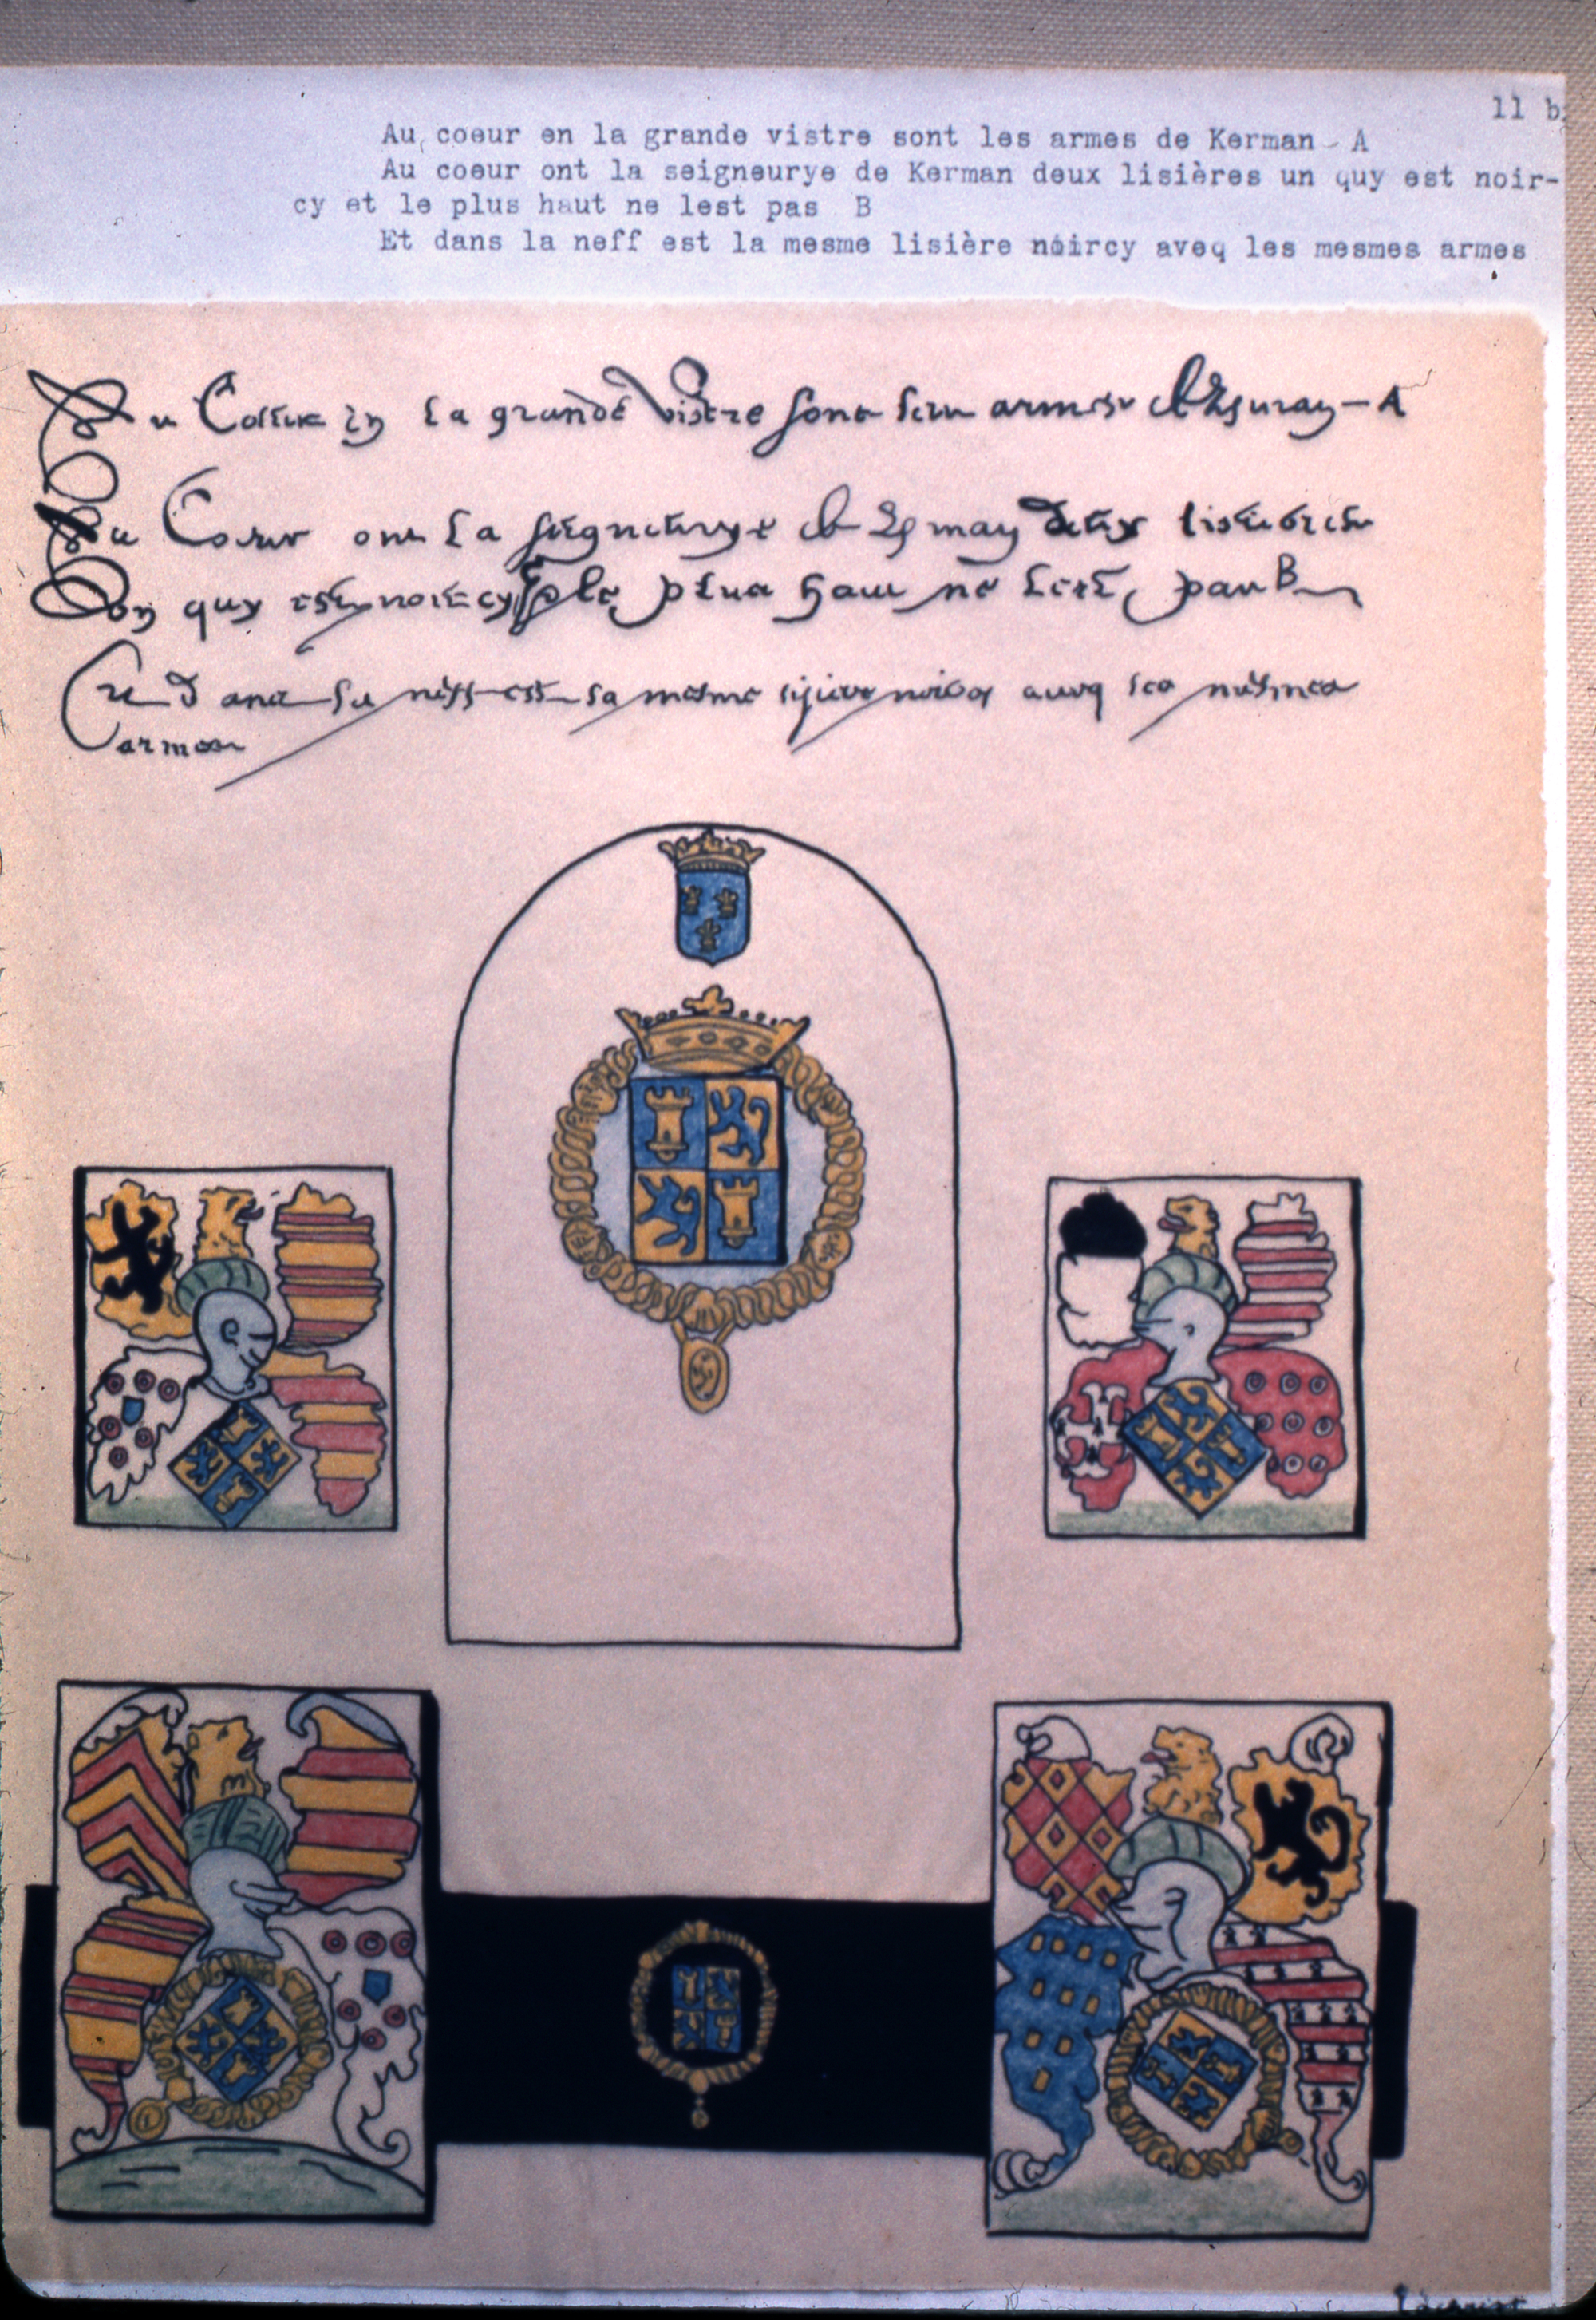 11 b
Au coeur en la grande vistre sont les armes de Kerman - A
Au coeur ont la seigneurye de Kerman deux lisières un quy est noir-
cy et le plus haut ne lest pas B
Et dans la neff est la mesme lisière noircy aveq les mesmes armes
Au Coeur en la grande vistre sont les armes de - A
Au Coeur ont la seigneurye de deux lisieres
un quy est noircy et le plus haut ne lest pas B
Et dans la neff est la mesme lisiere noircy aveq les mesmes
armes